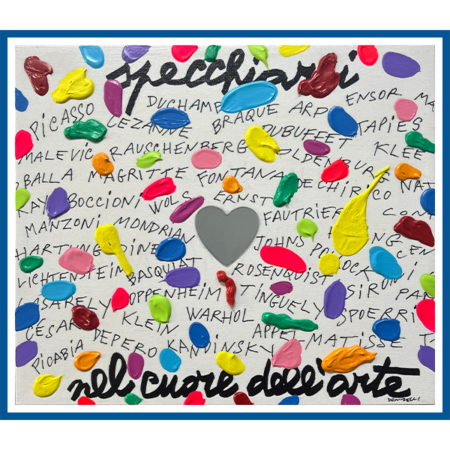 specchiarsi
DUCHAMP ENSOR MA
PICASSO CEZANNE BRAQUE ARP TAPIES
DUBUFFET
MALEVIC RAUSCHENBERG OLDENBURG KLEE
BALLA MAGRITTE FONTANA DE CHIRICO
KAY BOCCIONI WOLS ERNST
MANZONI MONDRIAN FAUTRIER
HARTUNG DINE JOHNS
LICHTENSTEIN BASQUIAT ROSENQUIST
VASARELY OPPENHEIM TINGUELY
CESAR KLEIN WARHOL APPEL MATISSE SPOERRI
PICABIA DEPERO KANDINSKY
nel cuore dell'arte